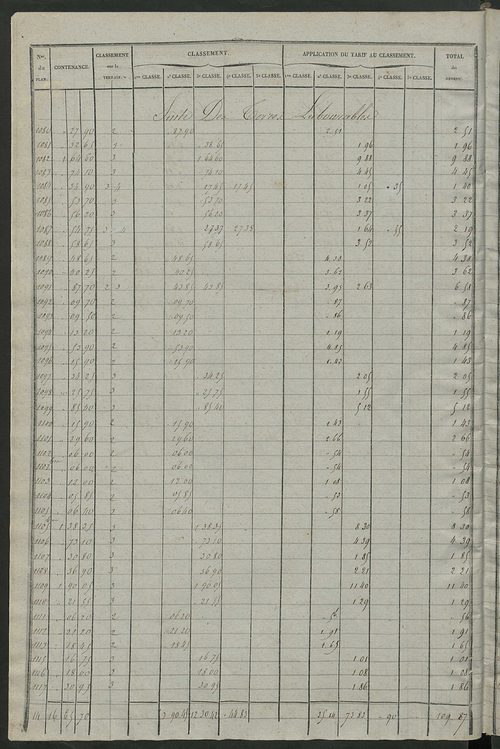 Nos. du PLAN. CONTENANCE. CLASSEMENT sur le TERRAIN. CLASSEMENT. APPLICATION DU TARIF AU CLASSEMENT. TOTAL du REVENU.
1re CLASSE. 2e CLASSE. 3e CLASSE. 4e CLASSE. 5e CLASSE. 1re CLASSE. 2e CLASSE. 3e CLASSE. 4e CLASSE. 5e CLASSE.
Suite Des Terres Labourables
1080 27 90 2 27 90 2 51 2 51
1081 32 65 3 32 65 1 96 1 96
1082 1 64 60 3 1 64 60 9 88 9 88
1083 74 10 3 74 10 4 45 4 45
1084 34 90 3 4 17 45 17 45 1 05 35 1 40
1085 53 70 3 53 70 3 22 3 22
1086 56 20 3 56 20 3 37 3 37
1087 54 75 3 4 27 37 27 38 1 64 55 2 19
1088 58 65 3 58 65 3 52 3 52
1089 48 65 2 48 65 4 38 4 38
1090 40 25 2 40 25 3 62 3 62
1091 87 70 2 3 43 85 43 85 3 95 2 63 6 58
1092 09 70 2 09 70 87 87
1093 09 50 2 09 50 86 86
1094 13 20 2 13 20 1 19 1 19
1095 53 90 2 53 90 4 85 4 85
1096 15 90 2 15 90 1 43 1 43
1097 34 25 3 34 25 2 05 2 05
1098 25 75 3 25 75 1 55 1 55
1099 85 40 3 85 40 5 12 5 12
1100 15 90 2 15 90 1 43 1 43
1101 29 60 2 29 60 2 66 2 66
1102 06 00 2 06 00 54 54
1102 06 00 2 06 00 54 54
1103 12 00 2 12 00 1 08 1 08
1104 05 85 2 05 85 53 53
1105 06 40 2 06 40 58 58
1105 1 38 35 3 1 38 35 8 30 8 30
1106 73 10 3 73 10 4 39 4 39
1107 30 80 3 30 80 1 85 1 85
1108 36 90 3 36 90 2 21 2 21
1109 1 90 05 3 1 90 05 11 40 11 40
1110 21 45 3 21 45 1 29 1 29
1111 06 20 2 06 20 56 56
1112 21 20 2 21 20 1 91 1 91
1113 18 45 2 18 45 1 65 1 65
1115 16 75 3 16 75 1 01 1 01
1116 18 00 3 18 00 1 08 1 08
1117 30 95 3 30 95 1 86 1 86